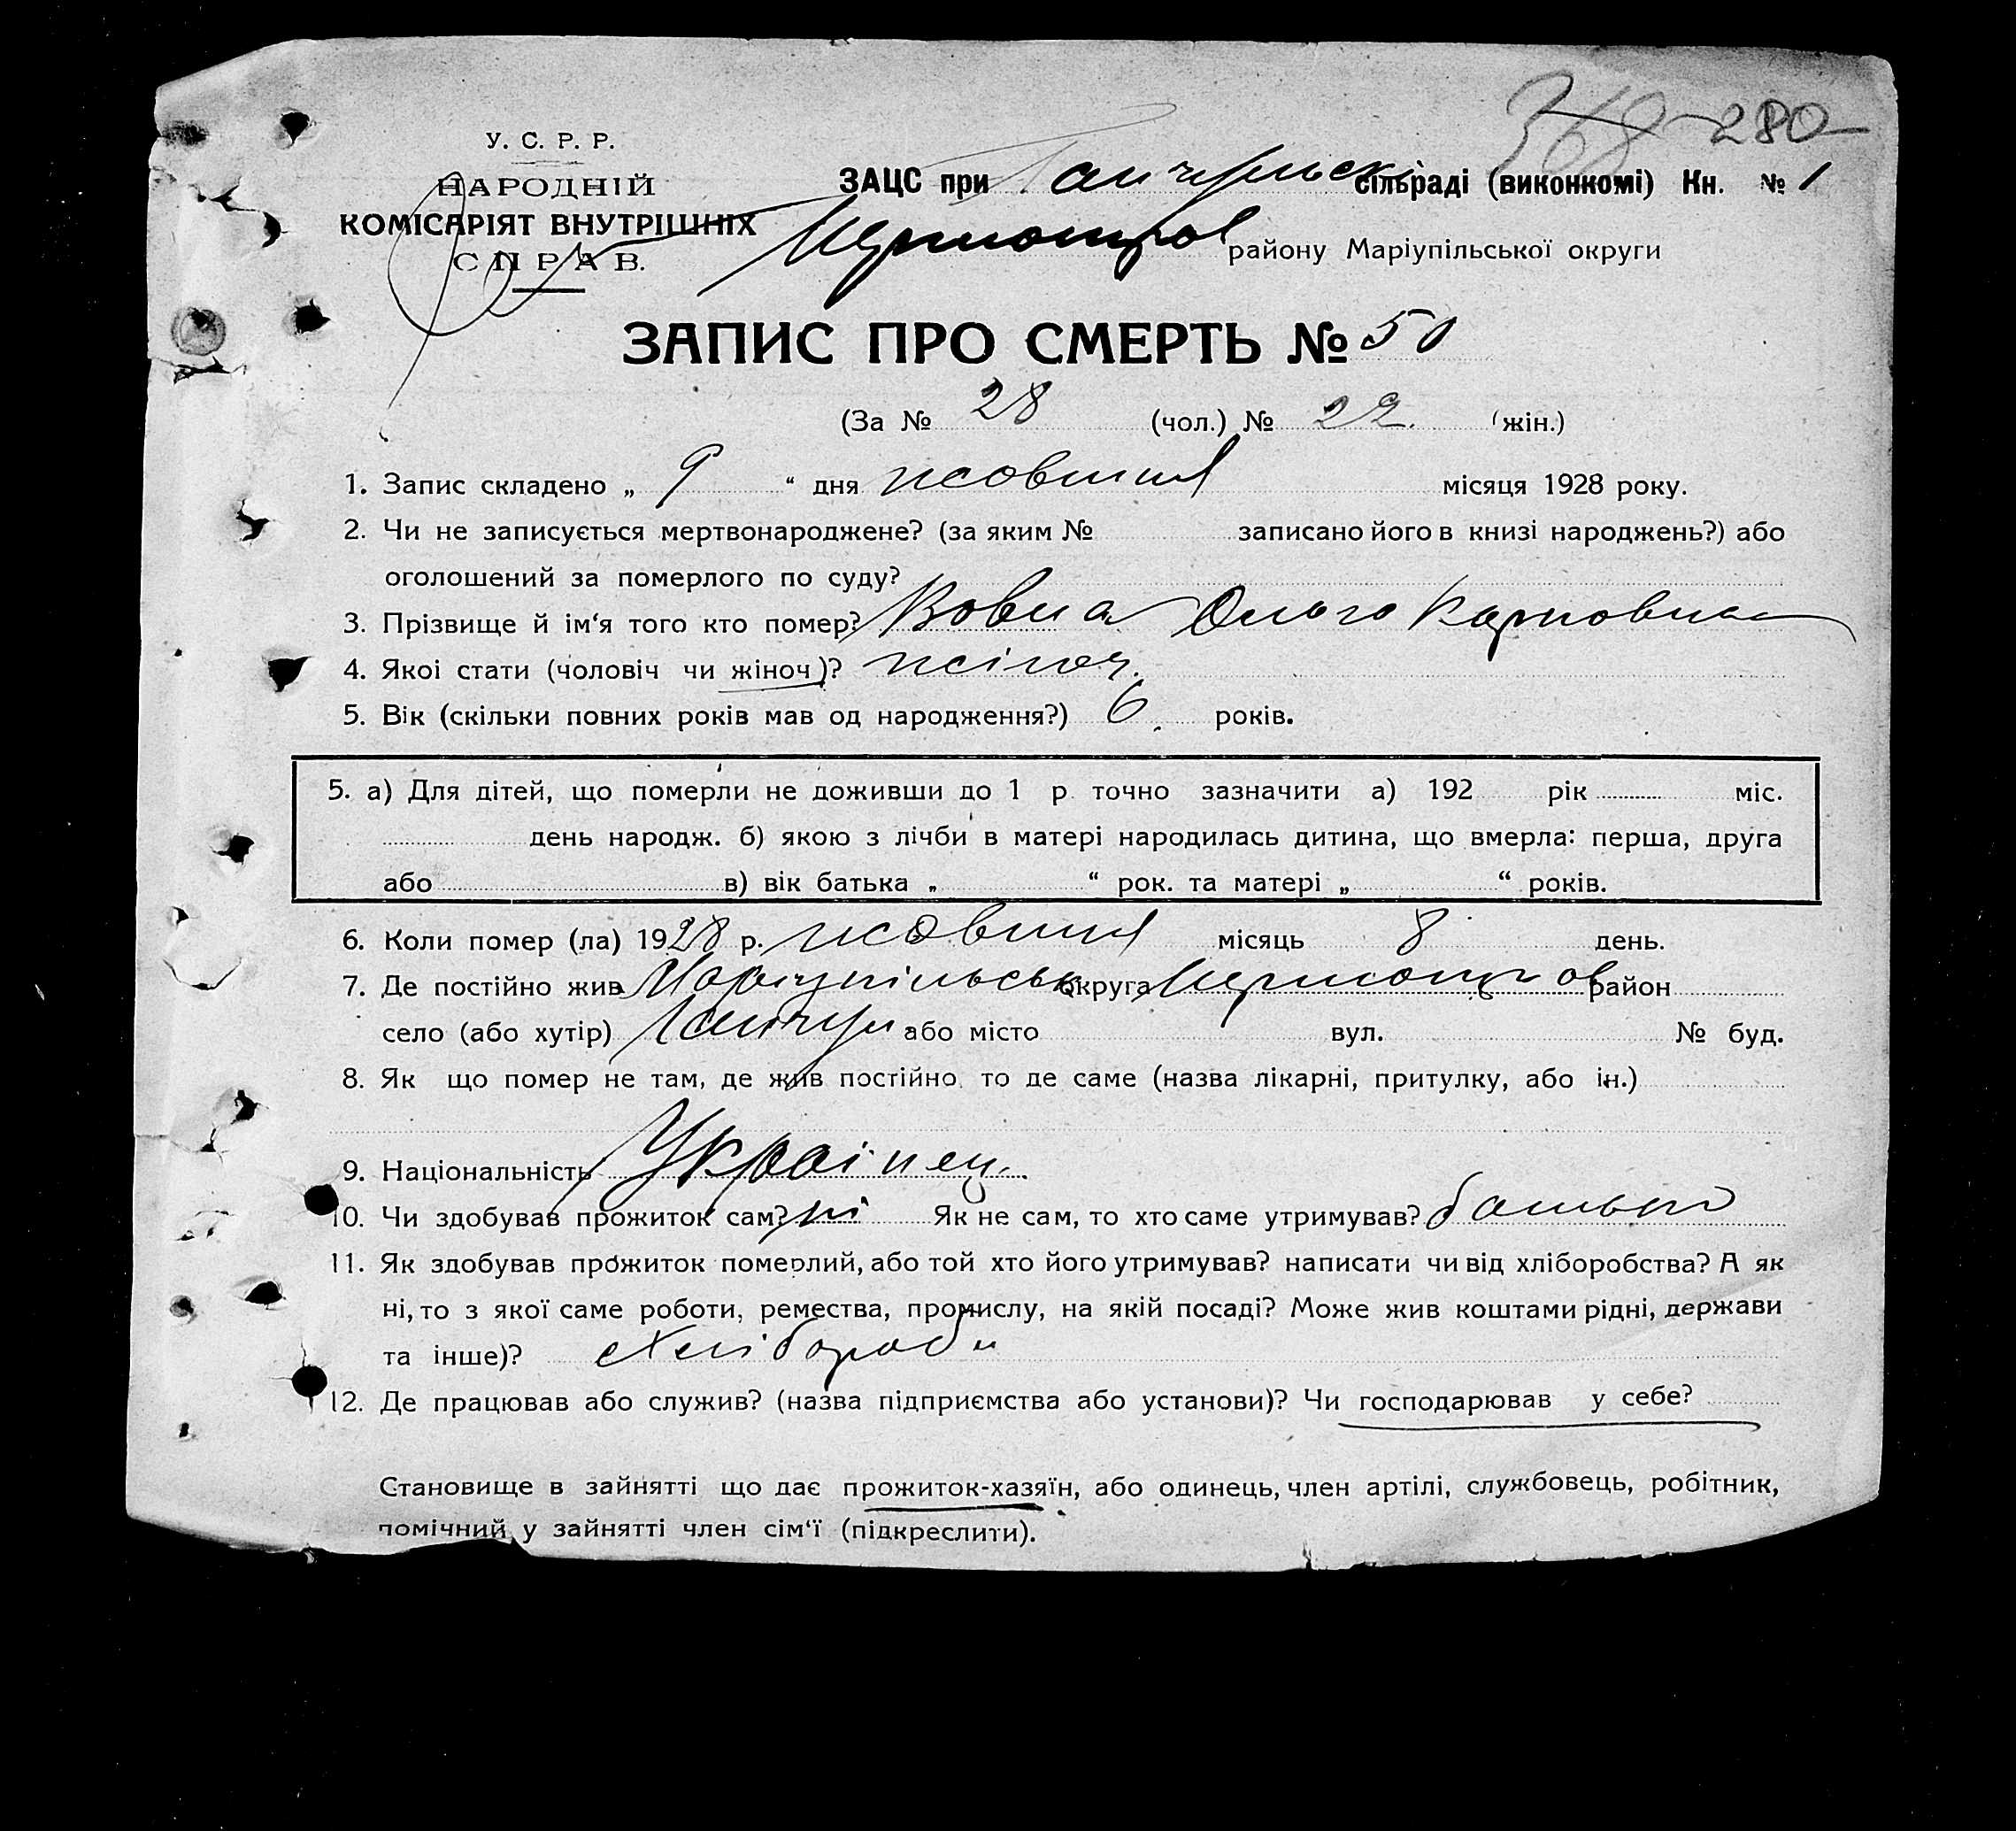 368 280
У. С. Р. Р.
НАРОДНІЙ
КОМІСАРІЯТ ВНУТРІШНІХ
СПРАВ.
ЗАЦС при сільраді (виконкомі) Кн. № 1
району Маріупільської округи
ЗАПИС ПРО СМЕРТЬ № 50
(За № 28 (чол.) № 22. (жін.)
1. Запис складено „ 9 “ дня жовтня місяця 1928 року.
2. Чи не записується мертвонароджене? (за яким № записано його в книзі народжень?) або
оголошений за померлого по суду?
3. Прізвище й ім‘я того кто помер? Вовна Ольга Карповна
4. Якоі стати (чоловіч чи жіноч)? жіноч.
5. Вік (скільки повних років мав од народження?) 6. років.
5. а) Для дітей, що померли не доживши до 1 р точно зазначити а) 192 рік міс.
день народж. б) якою з лічби в матері народилась дитина, що вмерла: перша, друга
або в) вік батька „ “ рок. та матері „ “ років.
6. Коли помер (ла) 1928 р. жовтня місяць 8 день.
7. Де постійно жив Маріупільськ округа район
село (або хутір) або місто вул. № буд.
8. Як що помер не там, де жив постійно то де саме (назва лікарні, притулку, або ін.)
9. Національність Українец.
10. Чи здобував прожиток сам? ні Як не сам, то хто саме утримував? батько
11. Як здобував прожиток померлий, або той хто його утримував? написати чи від хліборобства? А як
ні, то з якої саме роботи, ремества, промислу, на якій посаді? Може жив коштами рідні, держави
та інше)? Хлібороби
12. Де працював або служив? (назва підприємства або установи)? Чи господарював у себе?
Становище в зайнятті що дає прожиток-хазяїн, або одинець, член артілі, службовець, робітник,
помічний у зайнятті член сім‘ї (підкреслити).